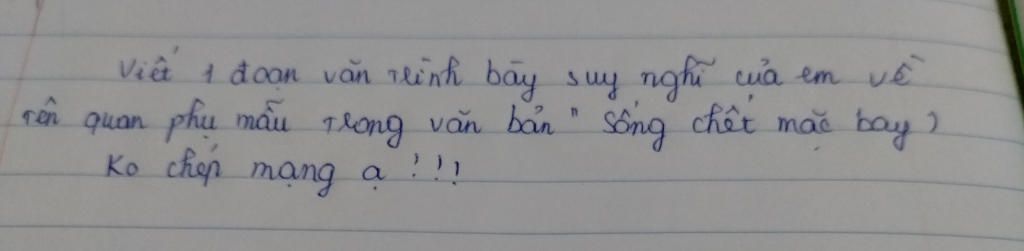 Viết 1 đoạn văn trình bày suy nghĩ của em về
tên quan phụ mẫu trong văn bản " sống chết mặc bay )
Ko chép mạng ạ !!!